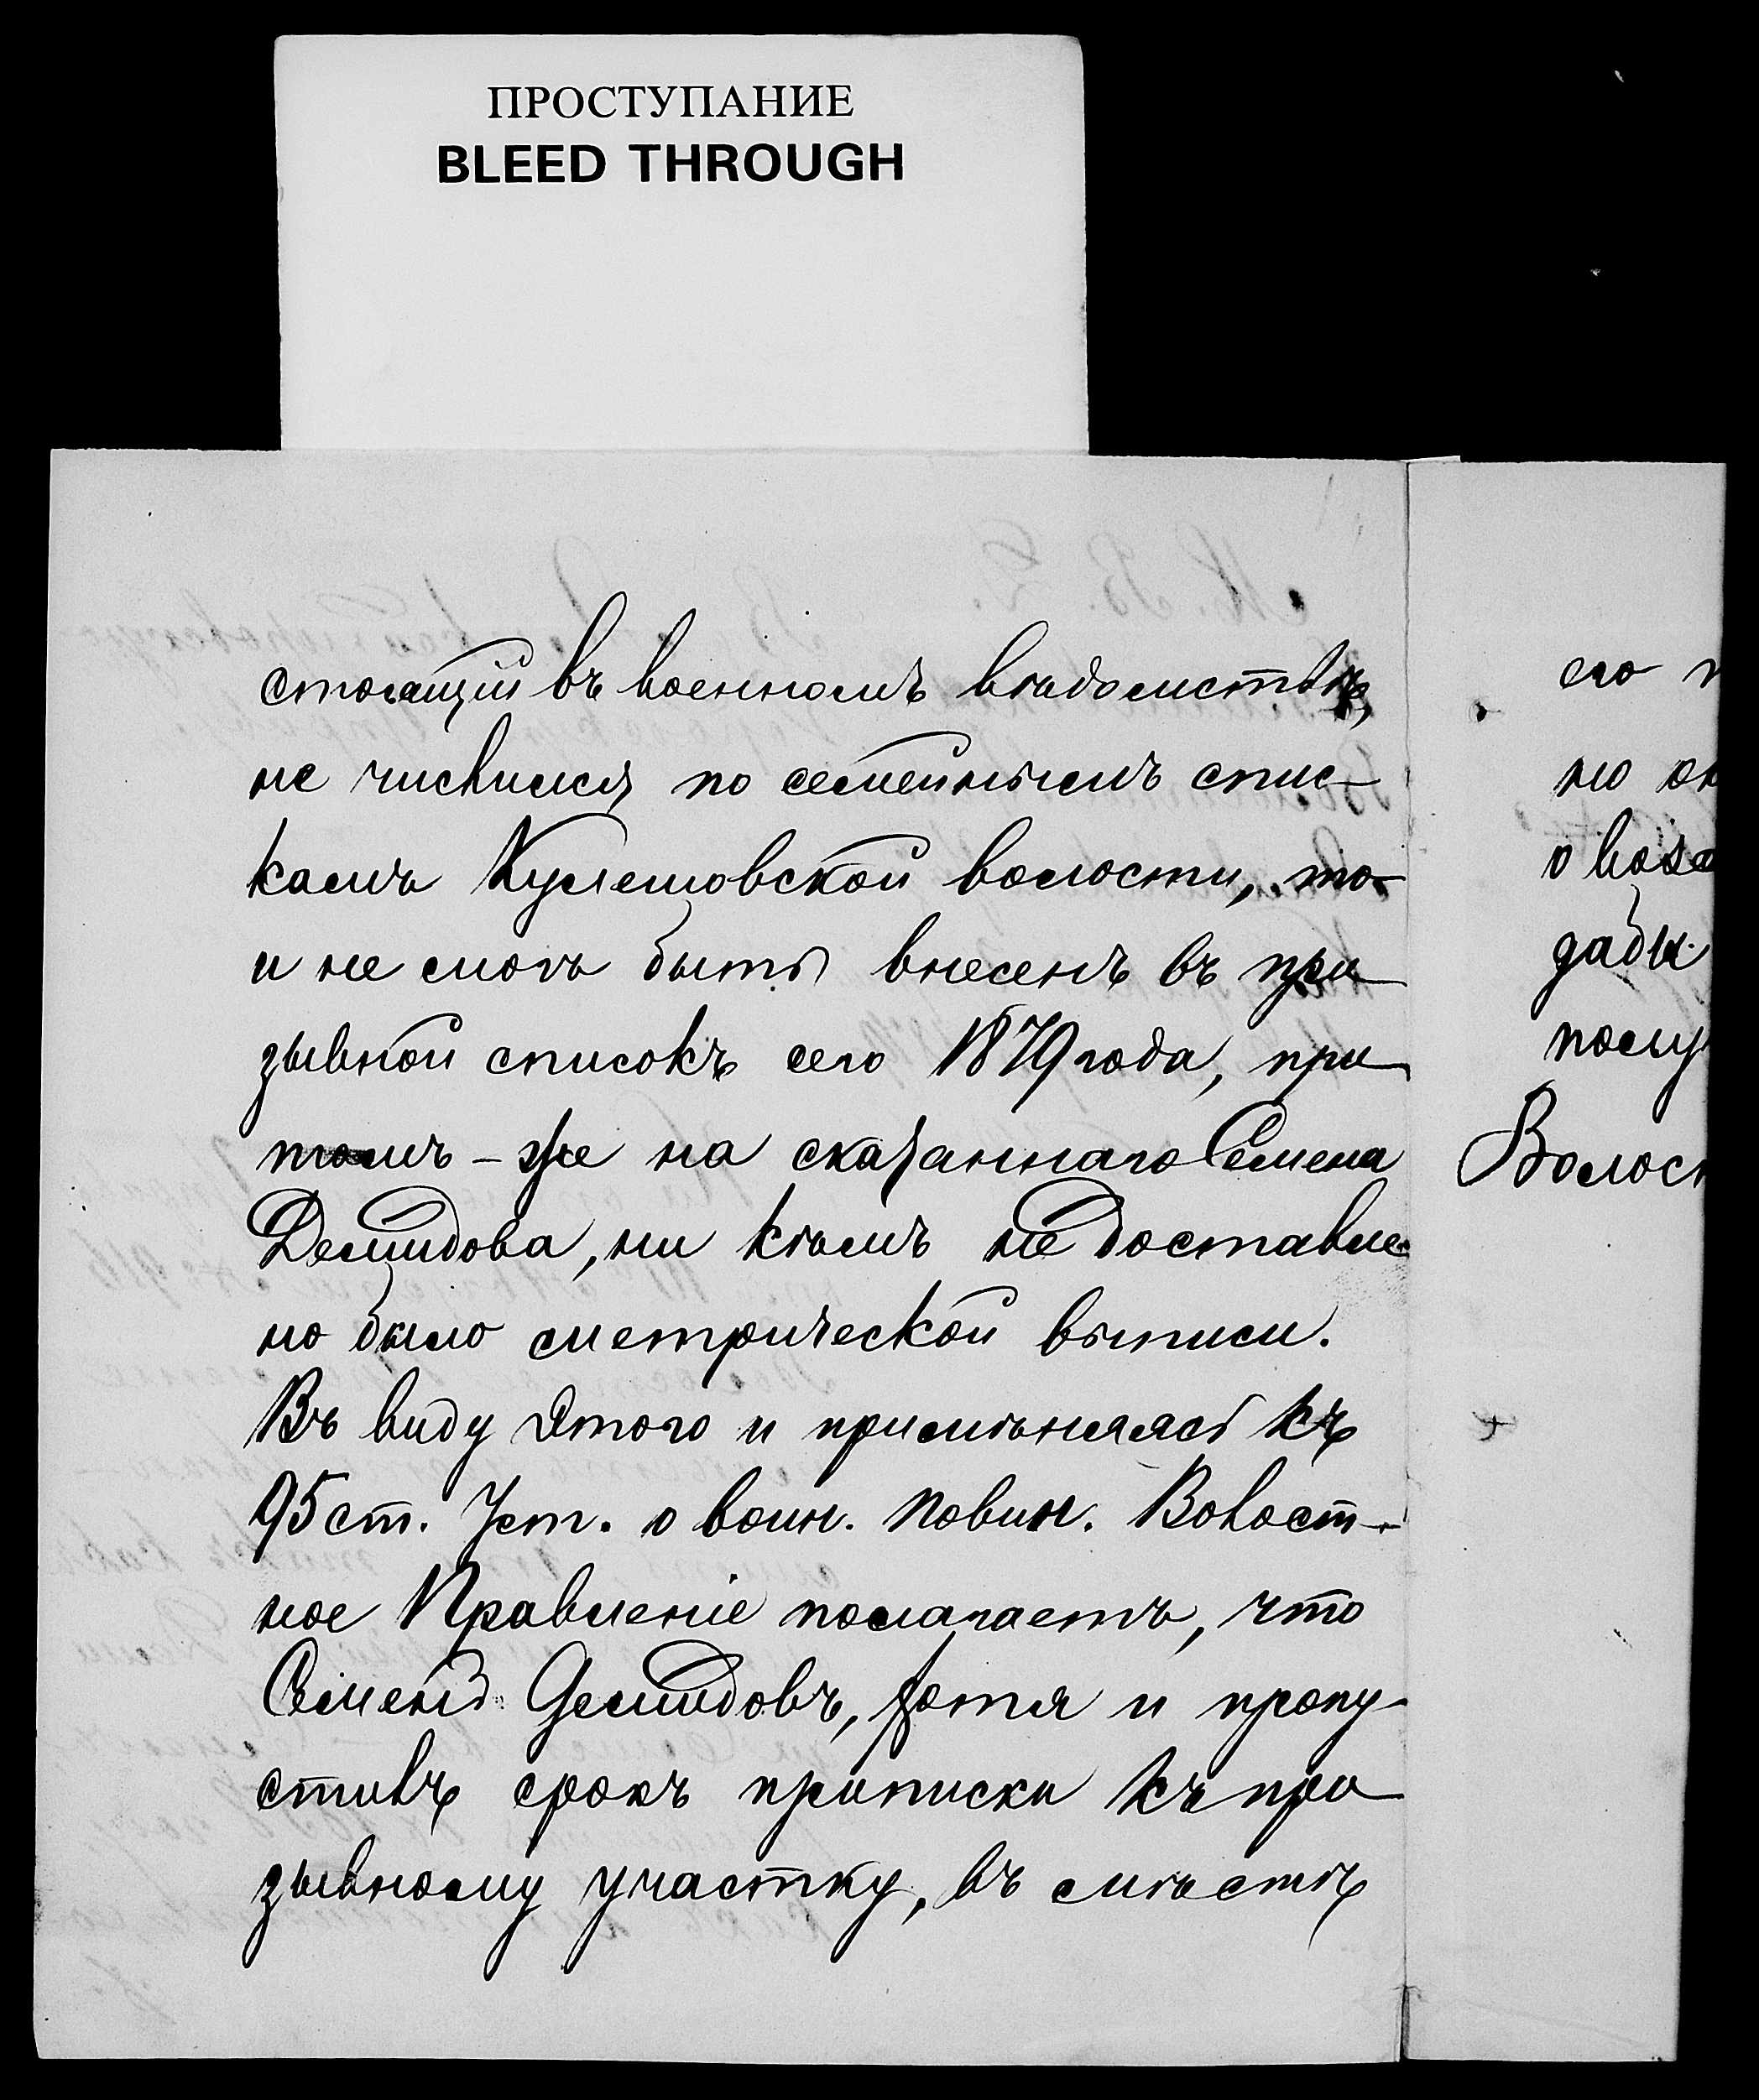 ПРОСТУПАНИЕ
BLEED THROUGH
стоящій въ военномъ вѣдомствѣ,
не числился по семейнымъ спис-
камъ Кулешовской волости, то
и не могъ быть внесенъ въ при
зывной списокъ сего 1879 года, при
томъ-же на сказаннаго Семена
Демидова, ни кѣмъ не доставле
но было метрической выписи.
Въ виду этого и примѣняясь къ
95 ст. Уст. о воин. повин. Волост-
ное Правленіе полагаетъ, что
Семенъ Демидовъ, хотя и пропу-
стивъ срокъ приписки къ при
зывному участку, въ мѣстѣ
его
но
дабы
Волос